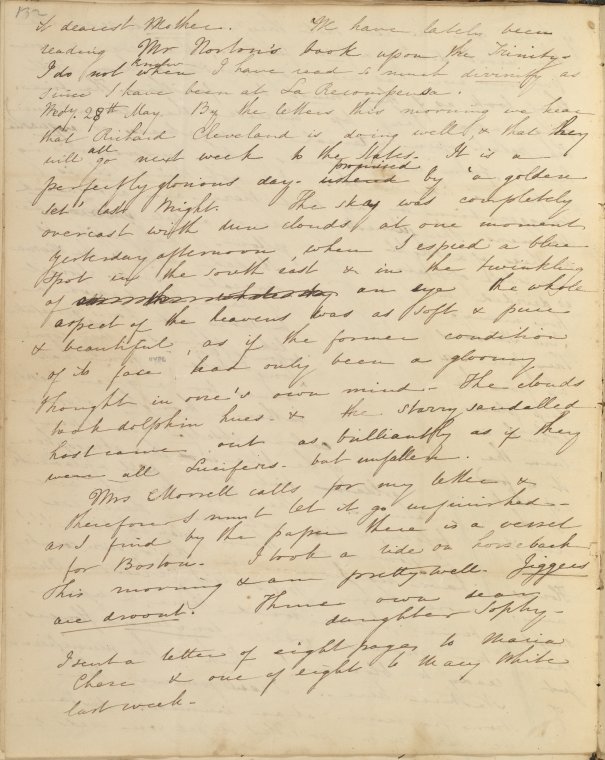 132
it dearest Mother. We have lately been
reading Mr Norton's book upon the Trinity
I do not know when I have read so much divinity as
since I have been at La Recompensa.
Wedy. 28th May. By the letters this morning we hear
that Richard Cleveland is doing well, & that they
will all go next week to the States. It is a
perfectly glorious day. ushered promised by "a golden
set" last night. The sky was completely
overcast with dun clouds, at one moment
yesterday afternoon, when I espied a blue
spot in the south east & in the twinkling
of an eye the whole
aspect of the heavens was as soft & pure
& beautiful, as if the former condition
of its face had only been a gloomy
thought in one's own mind. The clouds
took dolphin hues. & the starry sandalled
host came out as brilliantly as if they
were all Lucifers. but unfallen.
Mrs Morrell calls for my letter &
therefore I must let it go unfinished.
as I find by the paper there is a vessel
for Boston. I took a ride on horseback
this morning & am pretty well. Jiggers
are droout. Thine own dear
daughter Sophy.
I sent a letter of eight pages to Maria
Chase & one of eight to Mary White
last week.